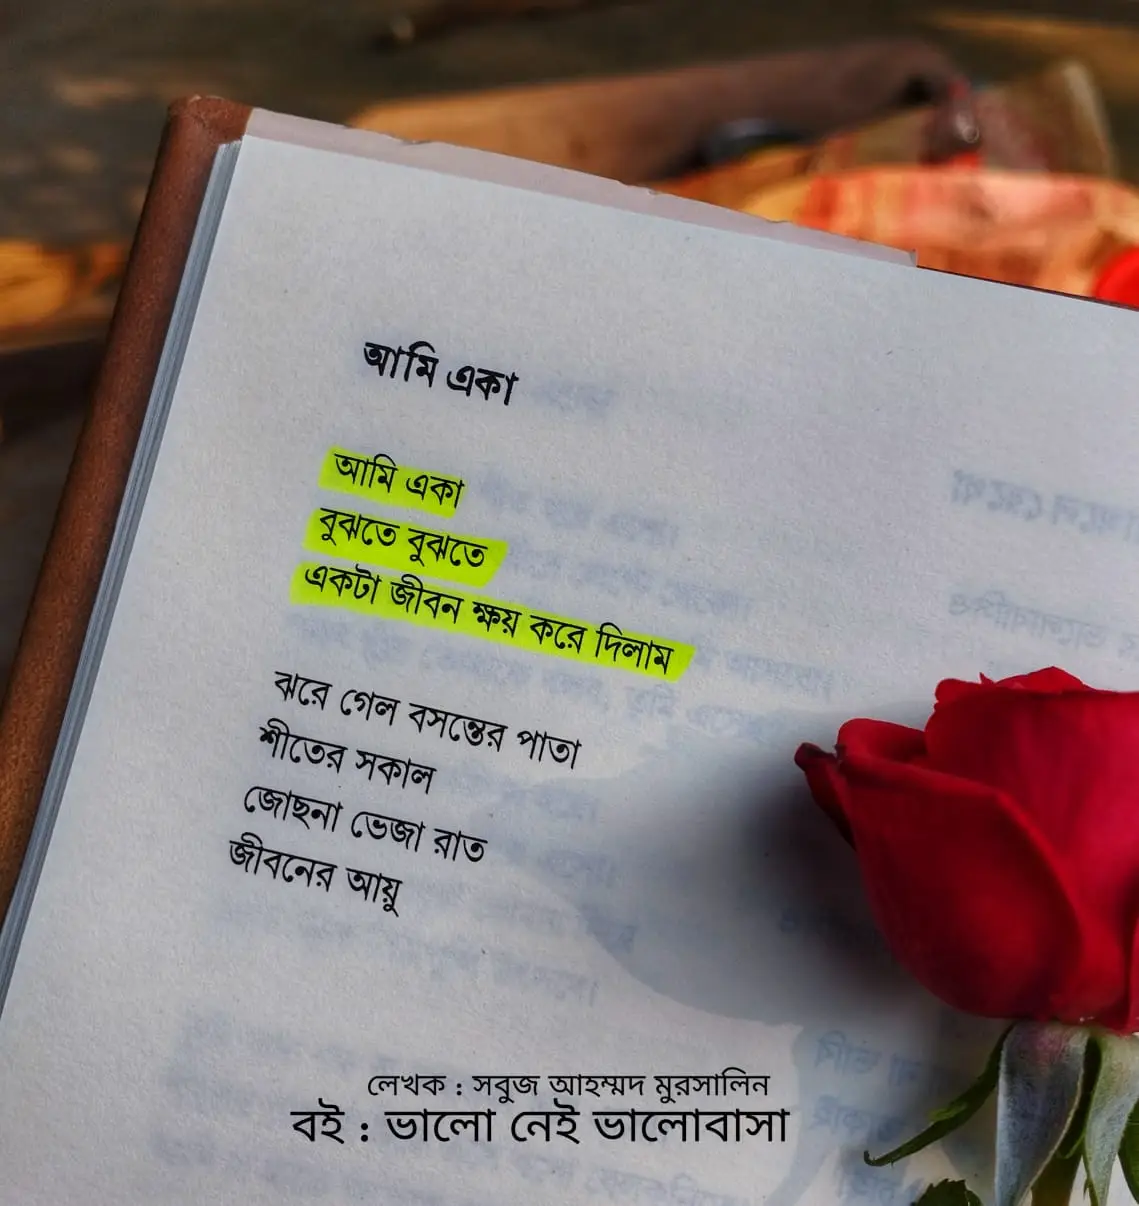 আমি একা
আমি একা
বুঝতে বুঝতে
একটা জীবন ক্ষয় করে দিলাম
ঝরে গেল বসন্তের পাতা
শীতের সকাল
জোছনা ভেজা রাত
জীবনের আয়ু
লেখক : সবুজ আহম্মদ মুরসালিন
বই : ভালো নেই ভালোবাসা